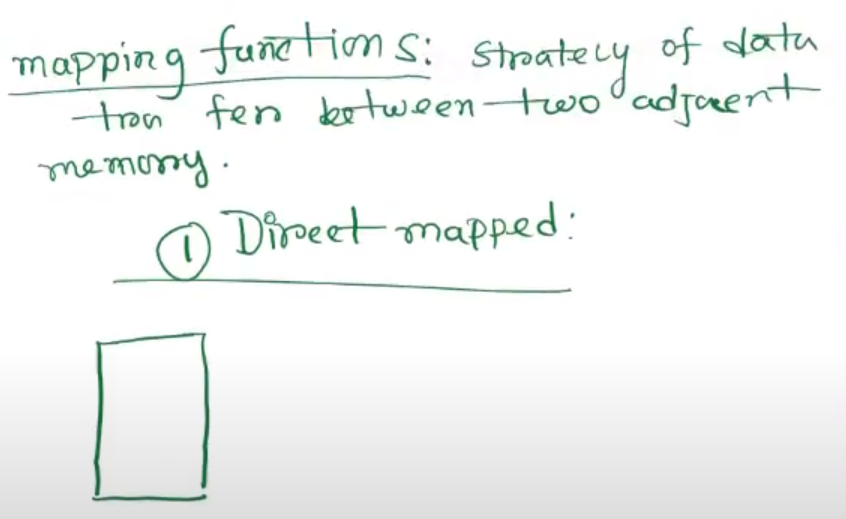 mapping functions: Strately of data
tran fer between two adjacent
memory.
① Direct mapped: